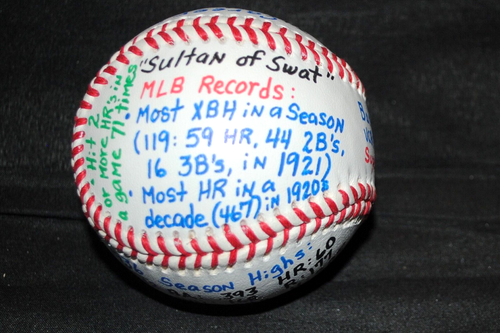 "Sultan of Swat"
MLB Records:
• Most XBH in a Season
(119: 59 HR, 44 2B's,
16 3B's, in 1921)
• Most HR in a
decade (467) in 1920's
• Hit 2
or More HR's in
a game 71 times
Season Highs:
393 HR: 60
R: 177